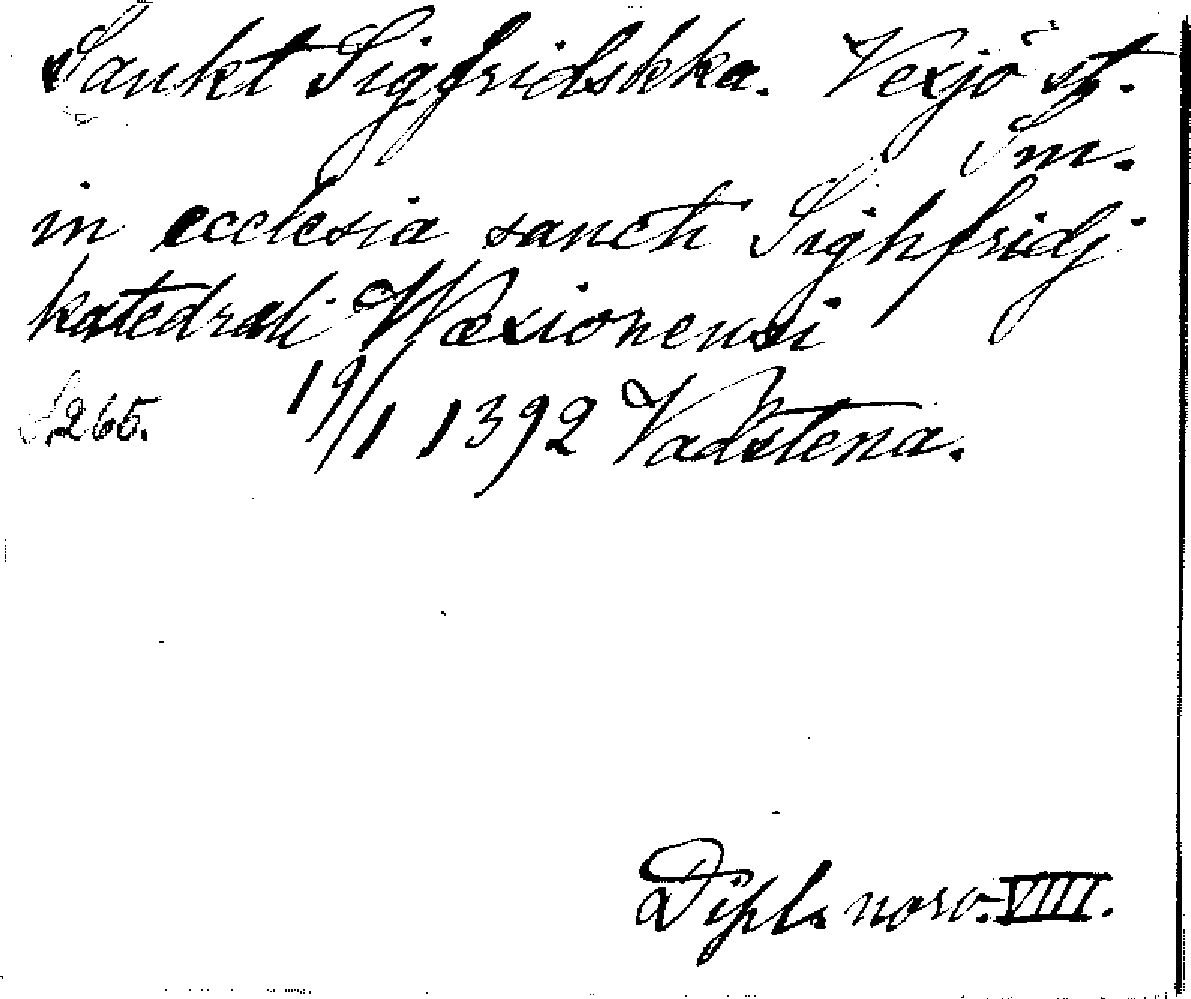 Sankt Sigfridskka. Vexjö st.
Sm.
in ecclesia sancti Sighfridj
katedrali Wexionensi
S. 265. 19/1 1392 Vadstena.
Dipl. norv. VIII.